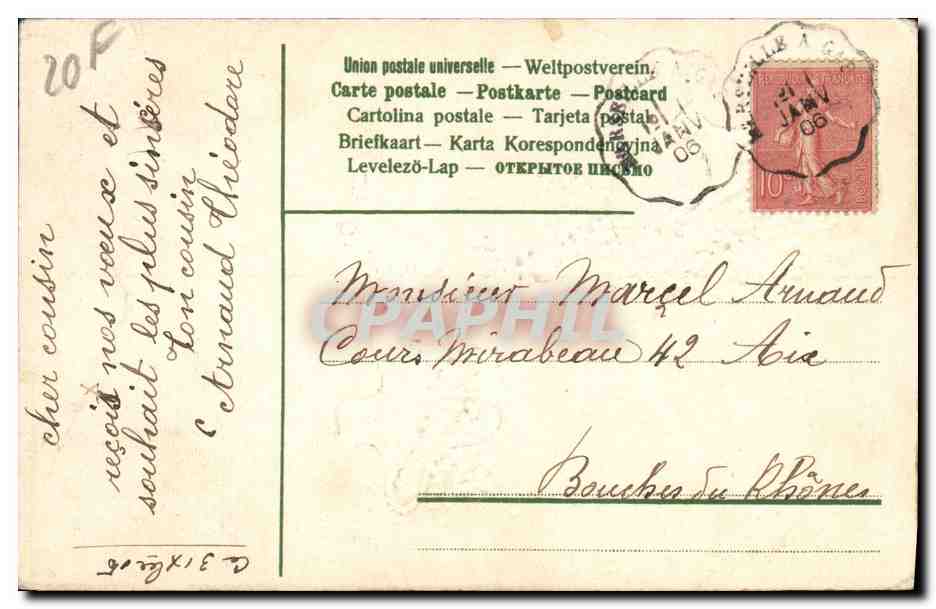 20F
cher cousin
reçois nos vœux et
souhait les plus sincères
Ton cousin
Arnaud Théodore
Ce 31 Xbre 05
Union postale universelle — Weltpostverein
Carte postale — Postkarte — Postcard
Cartolina postale — Tarjeta postal
Briefkaart — Karta Korespondencyjna
Levelező-Lap — ОТКРЫТОЕ ПИСЬМО
MARSEILLE A GAP
1
JANV
06
MARSEILLE A GAP
1
JANV
06
REPUBLIQUE FRANÇAISE
10
POSTES
Monsieur Marcel Arnaud
Cours Mirabeau 42 Aix
Bouches du Rhône
CPAPHIL